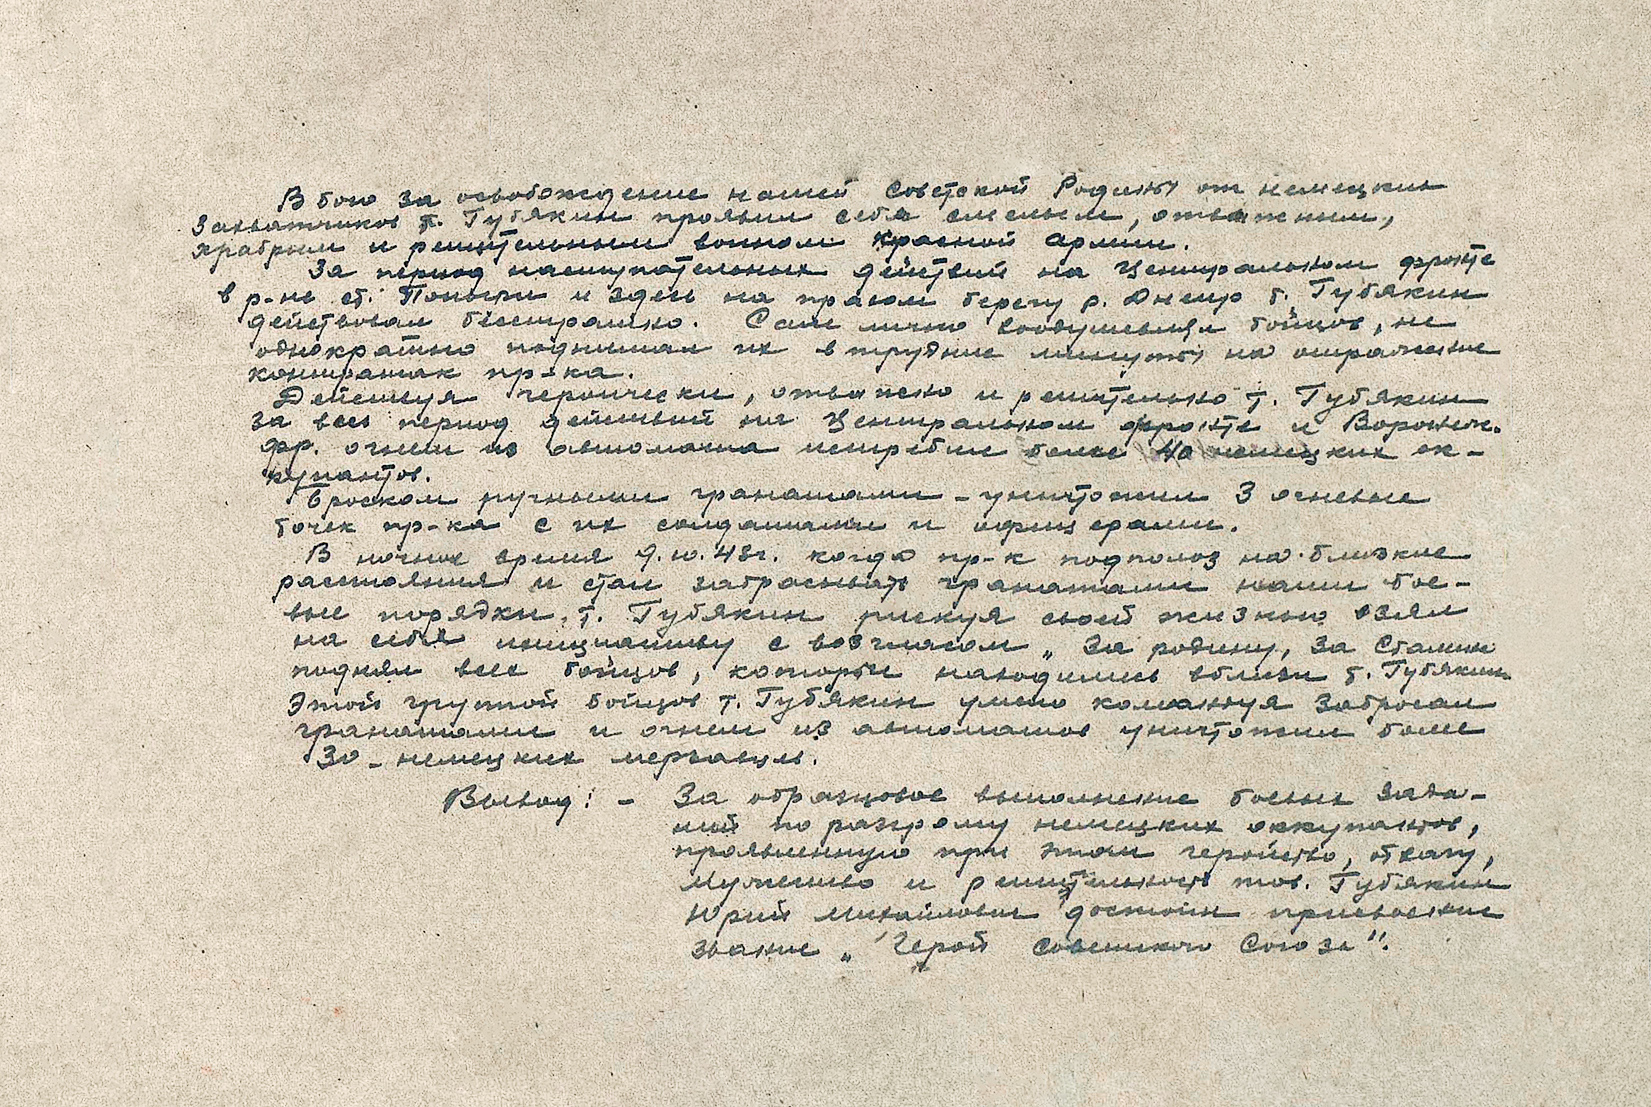 В бою за освобождение нашей Советской Родины от немецких
захватчиков т. Губякин проявил себя смелым, отважным,
храбрым и решительным воином Красной Армии.
За период наступательных действий на Центральном фронте
в р-не ст. Поныри и здесь на правом берегу р. Днепр т. Губякин
действовал бесстрашно. Сам лично воодушевляя бойцов, не
однократно поднимал их в трудные минуты на отражение
контратак пр-ка.
Действуя героически, отважно и решительно т. Губякин
за весь период действий на Центральном фронте и Воронеж.
фр. огнем из автомата истребил более 40 немецких ок-
купантов.
Броском ручными гранатами - уничтожил 3 огневые
точек пр-ка с их солдатами и офицерами.
В ночное время 9.10.43г. когда пр-к подполоз на близкие
расстояния и стал забрасывать гранатами наши бое-
вые порядки, т. Губякин рискуя своей жизнью взял
на себя инициативу с возгласом „За родину, за Сталина
поднял всех бойцов, которые находились вблизи т. Губякин
Этой группой бойцов т. Губякин умело командуя забросал
гранатами и огнем из автоматов уничтожил более
30 - немецких мерзавцев.
Вывод: - За образцовое выполнение боевых зада-
ний по разгрому немецких оккупантов,
проявленную при этом геройство, отвагу,
мужество и решительность тов. Губякин
Юрий Михайлович достоин присвоение
звание „Герой Советского Союза".